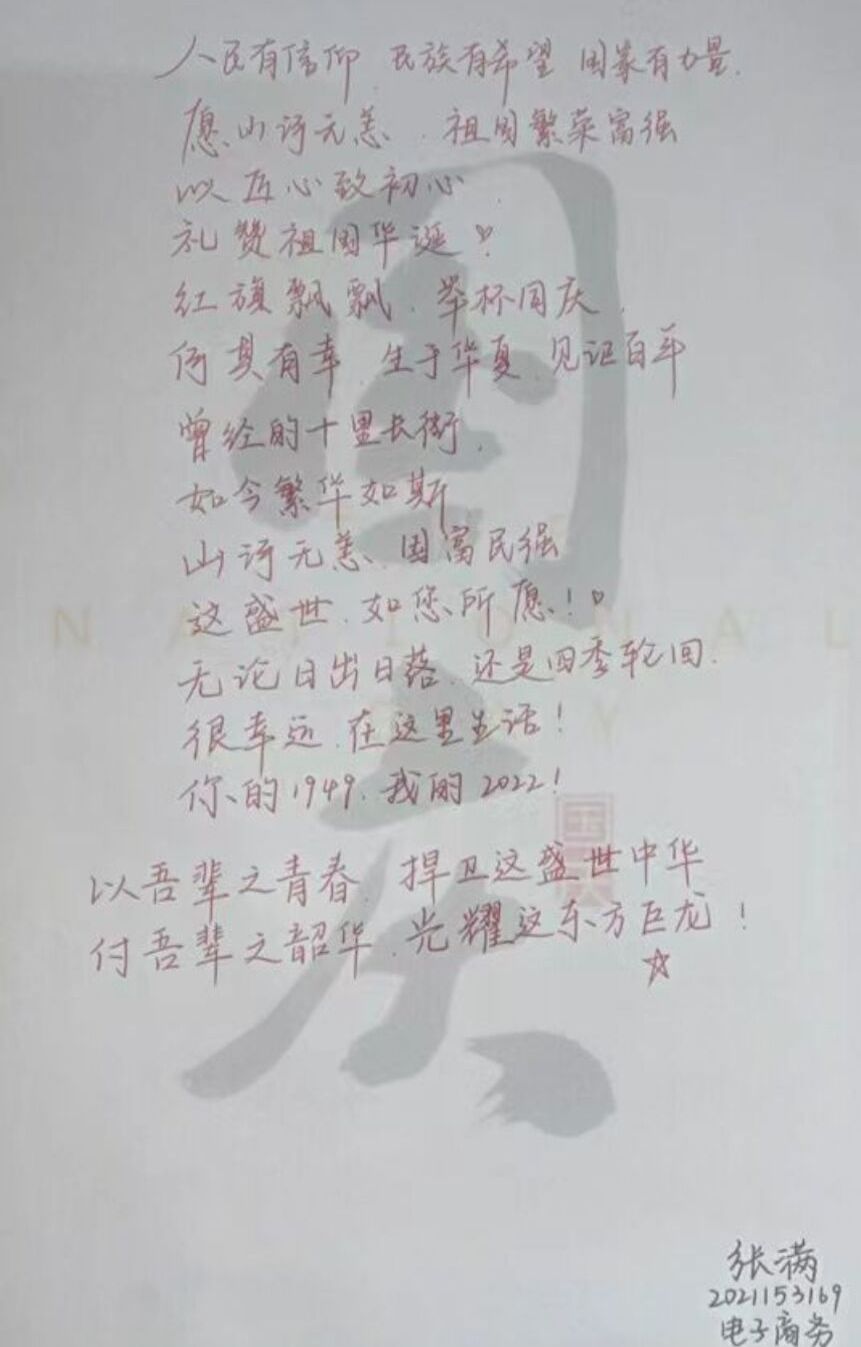 人民有信仰 民族有希望 国家有力量.
愿山河无恙. 祖国繁荣富强
以匠心致初心.
礼赞祖国华诞♡
红旗飘飘. 举杯同庆.
何其有幸. 生于华夏. 见证百年
曾经的十里长街.
如今繁华如斯
山河无恙. 国富民强
这盛世. 如您所愿!♡
无论日出日落. 还是四季轮回.
很幸运. 在这里生活!
你的1949. 我的2022!
以吾辈之青春. 捍卫这盛世中华
付吾辈之韶华. 光耀这东方巨龙!
☆
国庆
NATIONAL
张满
2021153169
电子商务